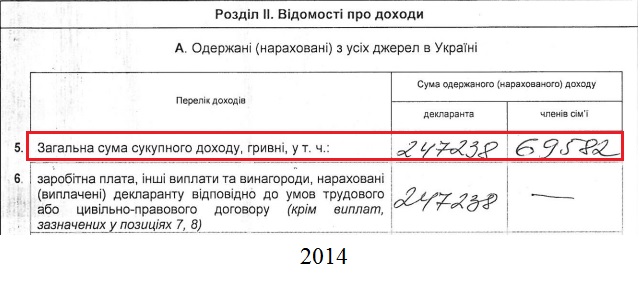 Розділ ІІ. Відомості про доходи
А. Одержані (нараховані) з усіх джерел в Україні
Перелік доходів
Сума одержаного (нарахованого) доходу
декларанта
членів сім'ї
5. Загальна сума сукупного доходу, гривні, у т. ч.: 247238 69582
6. заробітна плата, інші виплати та винагороди, нараховані
(виплачені) декларанту відповідно до умов трудового
або цивільно-правового договору (крім виплат,
зазначених у позиціях 7, 8)
247238 —
2014